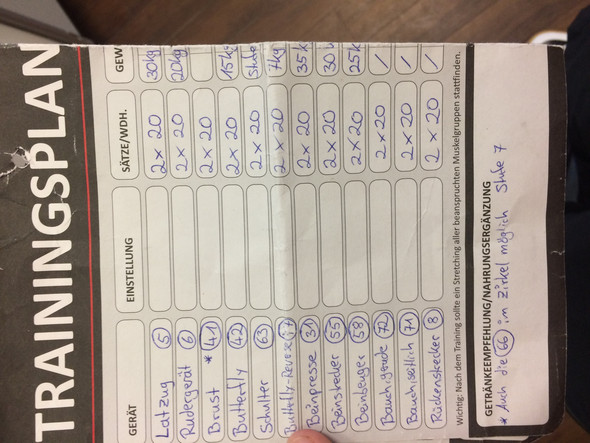 TRAININGSPLAN
GERÄT EINSTELLUNG SÄTZE/WDH. GEW
Latzug 5 2 x 20 30kg
Rudergerät 6 2 x 20 20kg
Brust * 41 2 x 20
Butterfly 42 2 x 20 15kg
Schulter 63 2 x 20 Stufe
Butterfly-Reverse 2 x 20 7kg
Beinpresse 31 2 x 20 35k
Beinstrecker 55 2 x 20 30k
Beinbeuger 58 2 x 20 25k
Bauch gerade 72 2 x 20 /
Bauch seitlich 71 2 x 20 /
Rückenstrecker 8 2 x 20 /
Wichtig: Nach dem Training sollte ein Stretching aller beanspruchten Muskelgruppen stattfinden.
GETRÄNKEEMPFEHLUNG/NAHRUNGSERGÄNZUNG
* Auch die 66 im Zirkel möglich Stufe 7